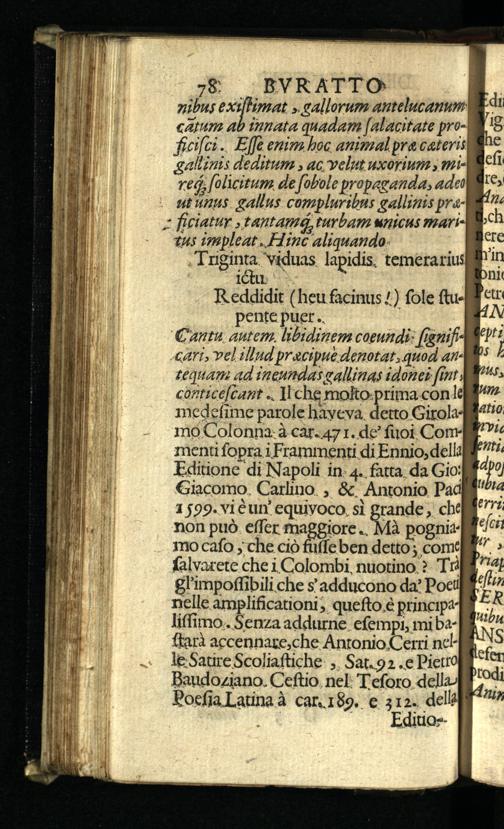 78 BVRATTO
nibus existimat, gallorum antelucanum
cātum ab innata quadam salacitate pro-
ficisci. Esse enim hoc animal præ cæteris
gallinis deditum, ac velut uxorium, mi-
req́; solicitum de sobole propaganda, adeo
ut unus gallus compluribus gallinis præ-
ficiatur, tantamq́; turbam unicus mari-
tus impleat. Hinc aliquando
Triginta viduas lapidis temerarius
ictu
Reddidit (heu facinus!) sole stu-
pente puer.
Cantu autem libidinem coeundi signifi-
cari, vel illud præcipuè denotat, quod an-
tequam ad ineundas gallinas idonei sint,
conticescant. Il che molto prima con le
medesime parole haveva detto Girola-
mo Colonna à car. 471. de' suoi Com-
menti sopra i Frammenti di Ennio, della
Editione di Napoli in 4. fatta da Gio:
Giacomo Carlino, & Antonio Paci
1599. vi è un' equivoco sì grande, che
non può esser maggiore. Mà pognia-
mo caso, che ciò fusse ben detto; come
salvarete che i Colombi nuotino? Trà
gl'impossibili che s'adducono da' Poeti
nelle amplificationi, questo è principa-
lissimo. Senza addurne esempi, mi ba-
starà accennare, che Antonio Cerri nel-
le Satire Scoliastiche, Sat. 92. e Pietro
Baudoziano Cestio nel Tesoro della
Poesia Latina à car. 189. e 312. della
Editio-